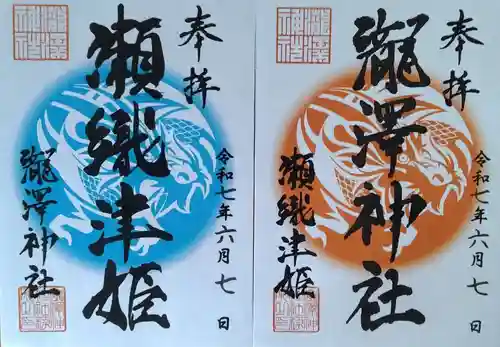 奉拝
令和七年六月七日
瀧澤神社
瀬織津姫
瀧澤
神社
奉拝
令和七年六月七日
瀬織津姫
瀧澤神社
瀧澤
神社